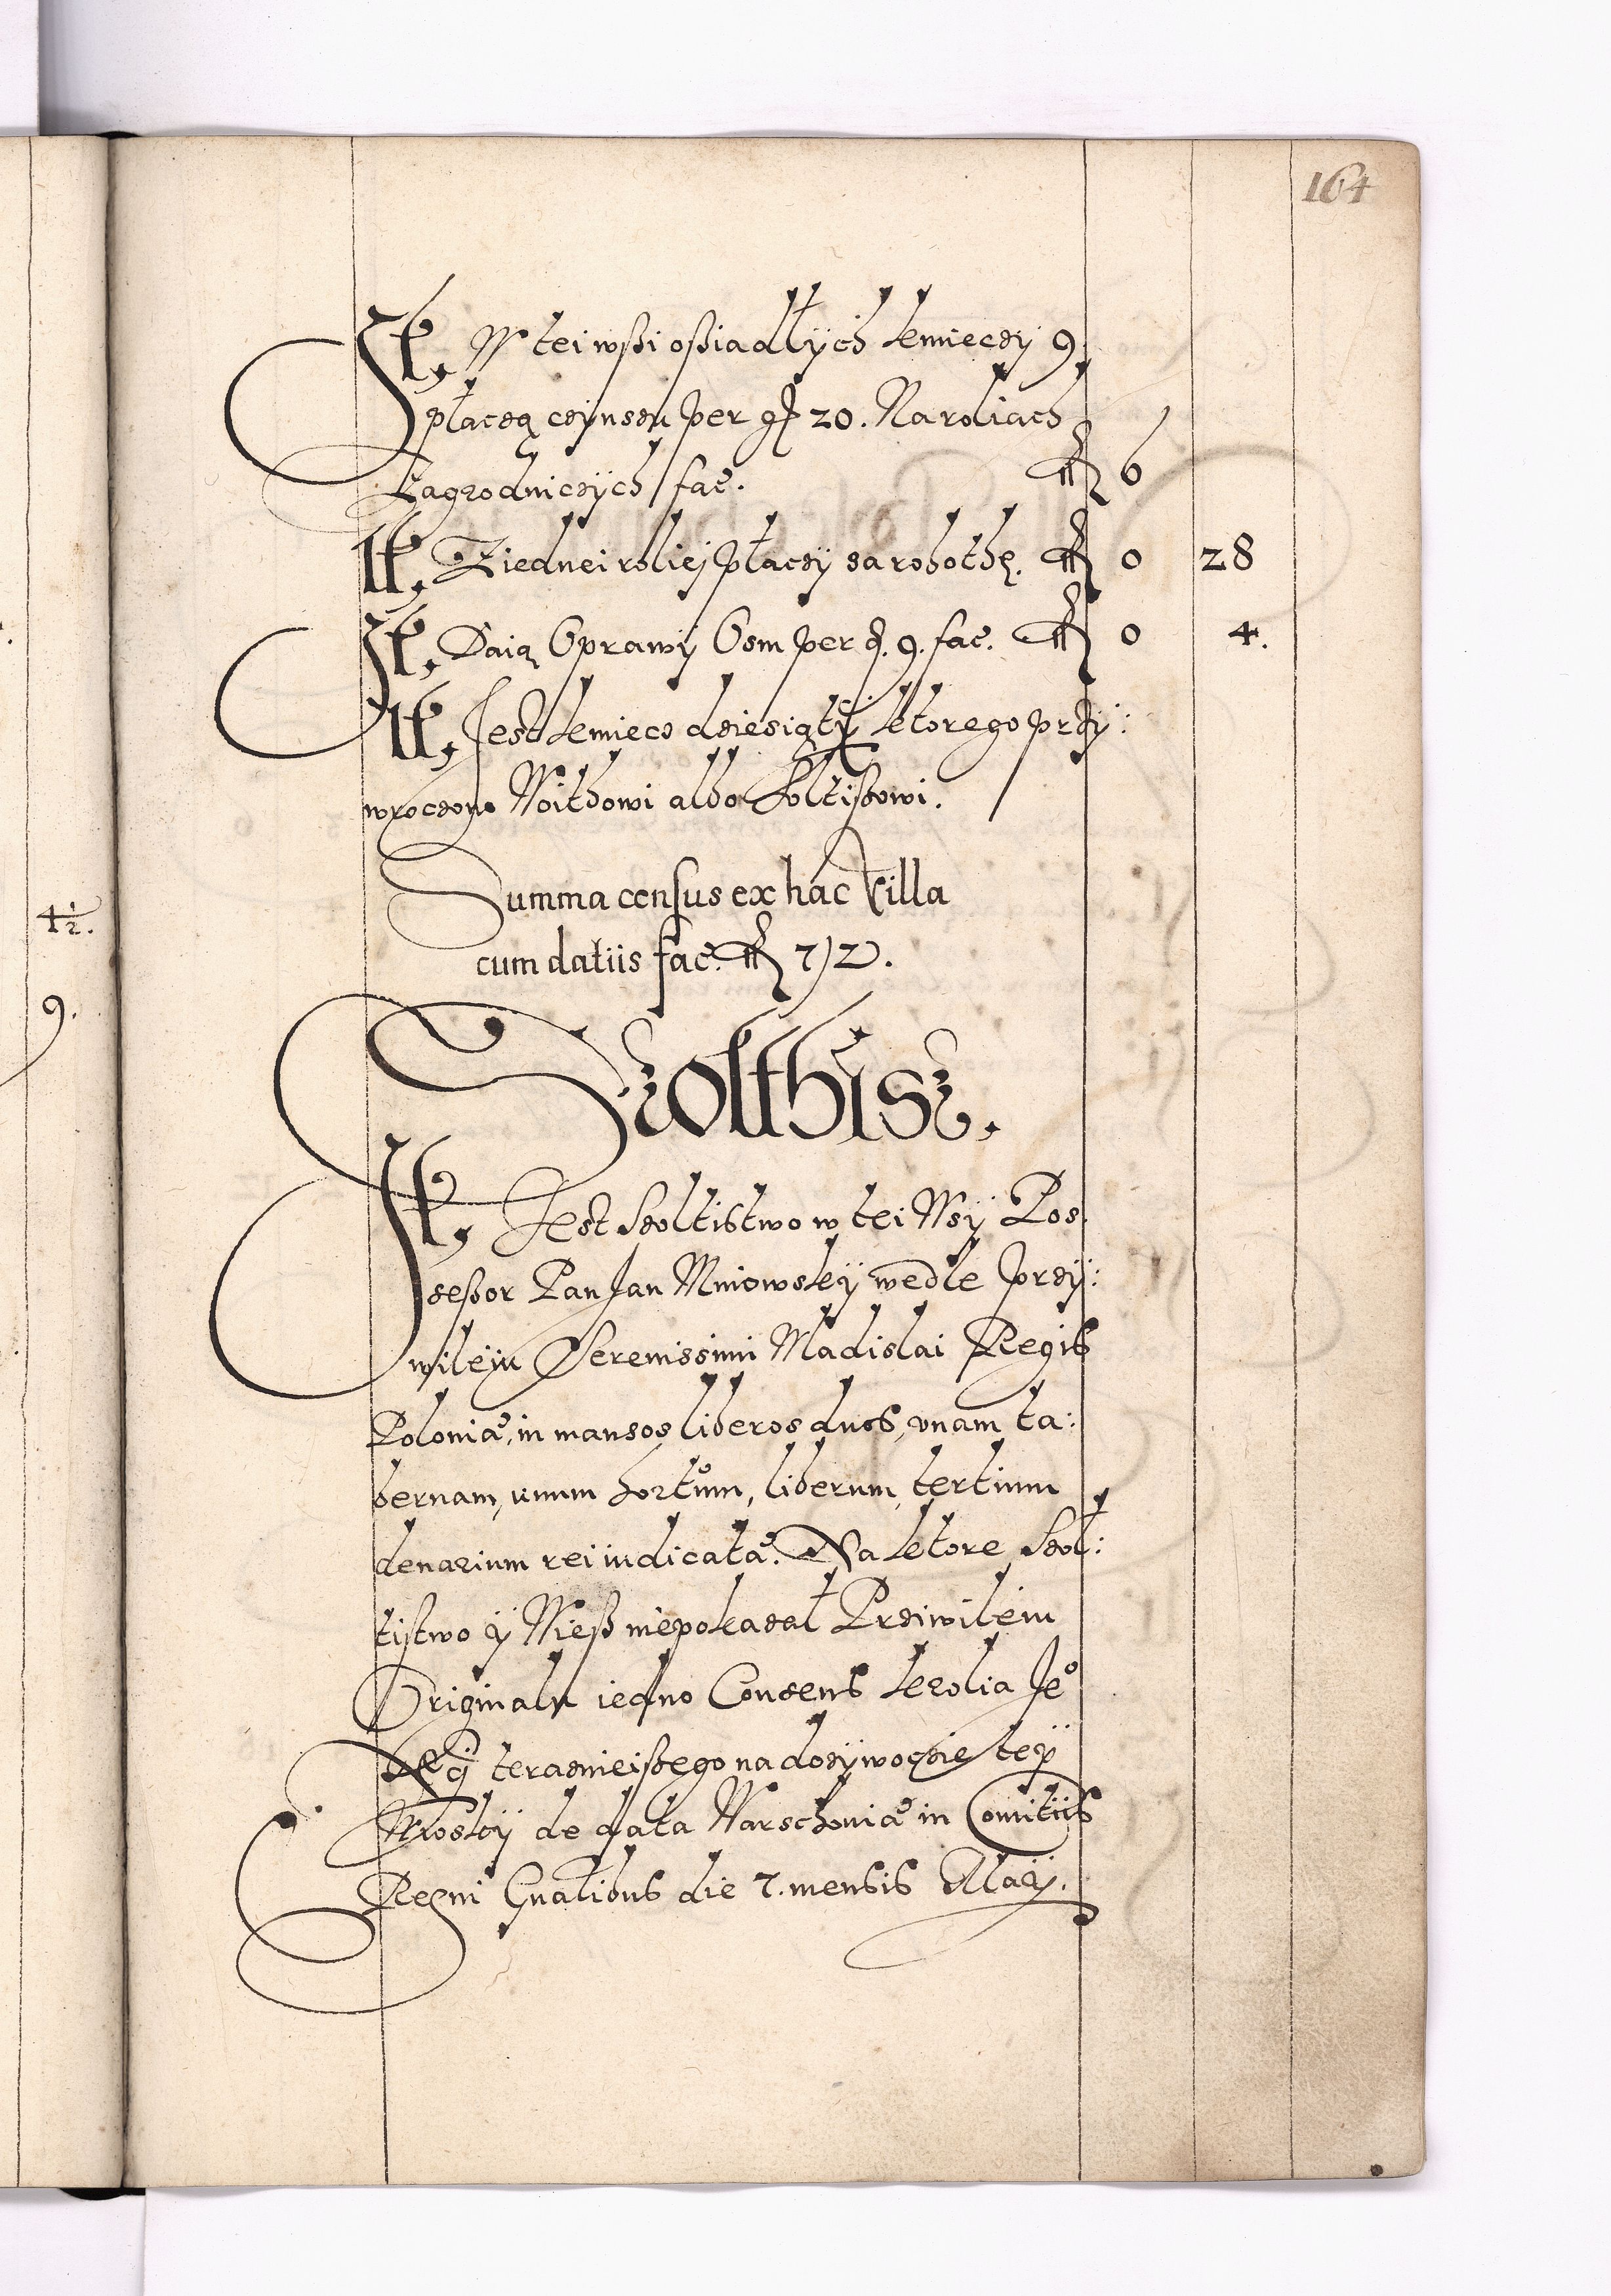 164
It. W tei wsſi osſiadlÿch kmieczÿ 9.
płaczą czÿnszu per gr 20. Na roliach
Zagrodniczÿch fac. fl 6
It. Z iednei roliej płaczÿ za robothę. fl 0 28
It. Daią Oprawÿ Osm per d. 9. fac. fl 0 4.
It. Jest kmiecz dziesiątÿ ktorego przÿ:
wroczono Woithowi albo Soltiſzowi.
Summa census ex hac Villa
cum datiis fac. fl 7/2.
Szolthisz.
It. Jest Szoltistwo w tei Wsÿ Pos
seßor Pan Jan Mniowskÿ wedle przÿ:
wileÿu Serenissimi Wladislai Regis
Poloniæ, in mansos liberos duos, vnam ta:
bernam, unum hortum, liberum, tertium
denarium rei iudicatæ. Na ktore Szoł:
tiſtwo ÿ Wieß niepokazał Prziwileiu
Originalu iedno Consens krolia Je°
Mci teraznieiſzego na dożÿwoczie teÿ
Wioskÿ de data Warschoviæ in Comitiis
Regni Gnalibus die 7. mensis Maÿ.
4½.
9.